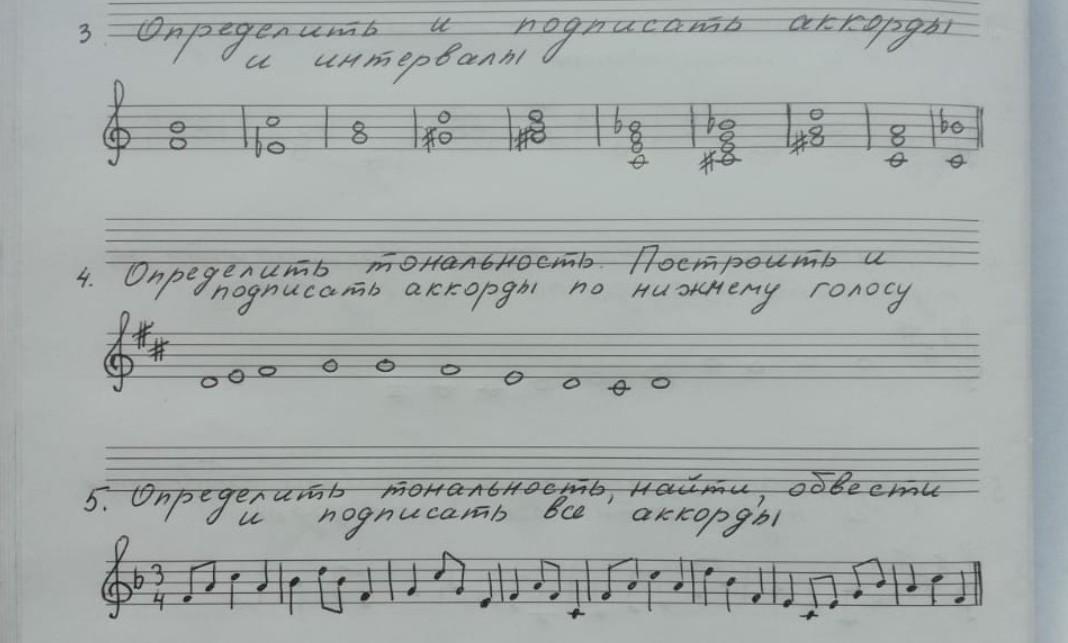 3 Определить и подписать аккорды
и интервалы
4. Определить тональность. Построить и
подписать аккорды по нижнему голосу
5. Определить тональность, найти, обвести
и подписать все аккорды
3
4